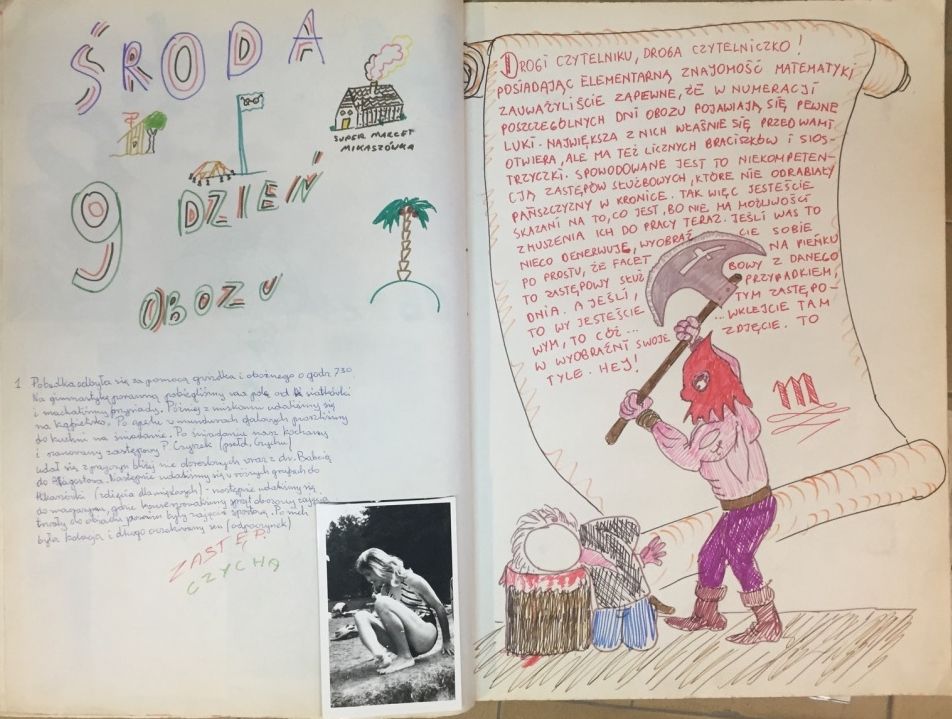 ŚRODA
SUPER MARCET
MIKASZÓWKA
9 DZIEŃ
OBOZU
1 Pobudka odbyła się za pomocą gwizdka i oboźnego o godz. 7.30
Na gimnastykę poranną pobiegliśmy na pole od siatkówki
i machaliśmy przysiady. Później z miskami udaliśmy się
na kąpielisko. Po apelu w mundurach galowych poszliśmy
do kuchni na śniadanie. Po śniadaniu nasz kochany
i szanowany zastępowy P. Czyżek (pseud. Czychu)
udał się z grupą niedorosłych wraz z dh. Babcią
do Augustowa. Następnie udaliśmy się w różnych grupach do
(zdjęcia dla większych) - następnie udaliśmy się
do magazynu, gdzie konserwowaliśmy sprzęt obozowy
trwały do obiadu potem były zajęcia sportowe. Po nich
była kolacja i długo oczekiwany sen (odpoczynek)
ZASTĘP
CZYCHA
DROGI CZYTELNIKU, DROGA CZYTELNICZKO!
POSIADAJĄC ELEMENTARNĄ ZNAJOMOŚĆ MATEMATYKI
ZAUWAŻYLIŚCIE ZAPEWNE, ŻE W NUMERACJI
POSZCZEGÓLNYCH DNI OBOZU POJAWIAJĄ SIĘ PEWNE
LUKI. NAJWIĘKSZA Z NICH WŁAŚNIE SIĘ PRZED WAMI
OTWIERA, ALE MA TEŻ LICZNYCH BRACISZKÓW I SIOS-
TRZYCZKI. SPOWODOWANE JEST TO NIEKOMPETEN-
CJĄ ZASTĘPÓW SŁUŻBOWYCH, KTÓRE NIE ODRABIAŁY
PAŃSZCZYZNY W KRONICE. TAK WIĘC JESTEŚCIE
SKAZANI NA TO, CO JEST, BO NIE MA MOŻLIWOŚCI
ZMUSZENIA ICH DO PRACY TERAZ. JEŚLI WAS TO
NIECO DENERWUJE, WYOBRAŹCIE SOBIE
PO PROSTU, ŻE FACET NA PIEŃKU
TO ZASTĘPOWY SŁUŻBOWY Z DANEGO
DNIA. A JEŚLI, PRZYPADKIEM,
TO WY JESTEŚCIE TYM ZASTĘPO-
WYM, TO CÓŻ... ...WKLEJCIE TAM
W WYOBRAŹNI SWOJE ZDJĘCIE. TO
TYLE. HEJ!
M